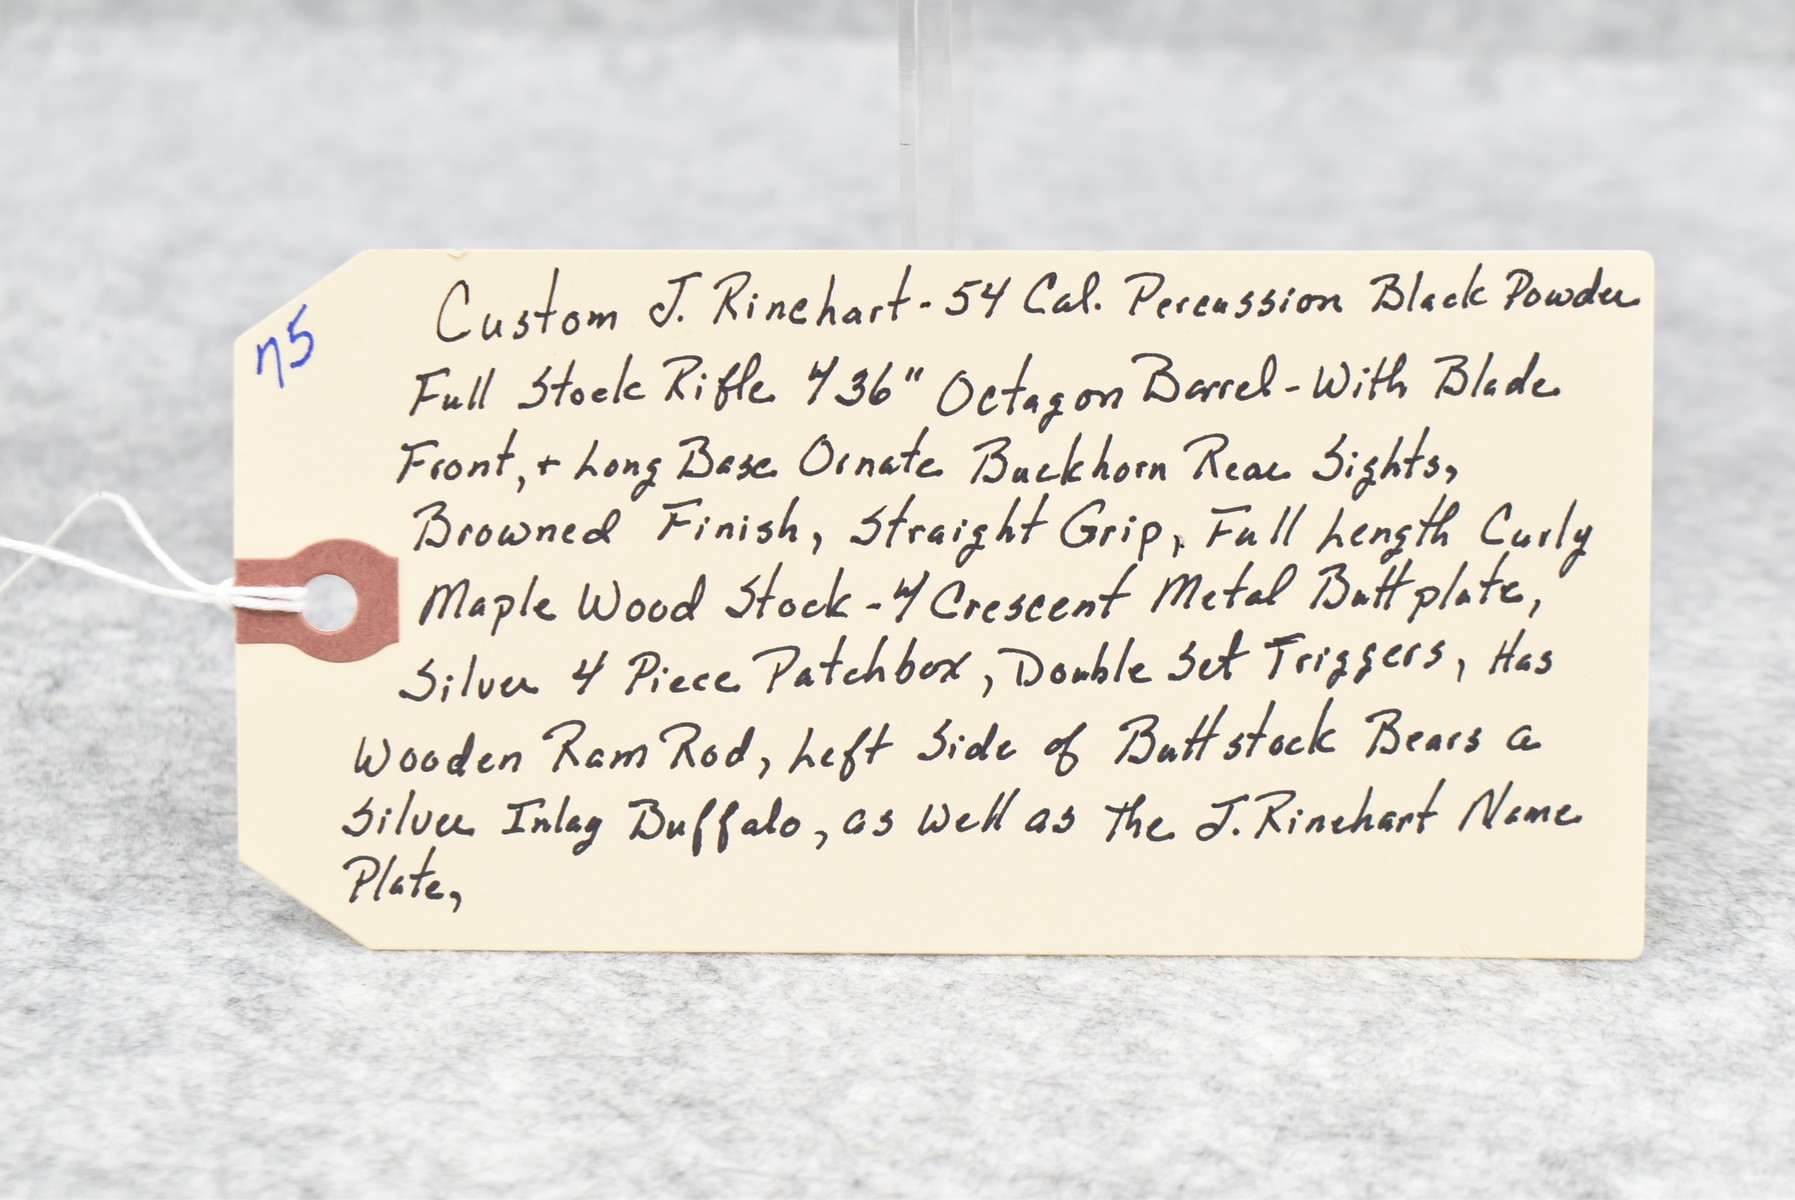 75
Custom J. Rinehart - 54 Cal. Percussion Black Powder
Full Stock Rifle w/ 36" Octagon Barrel - With Blade
Front, + Long Base Ornate Buckhorn Rear Sights,
Browned Finish, Straight Grip, Full Length Curly
Maple Wood Stock - w/ Crescent Metal Buttplate,
Silver 4 Piece Patchbox, Double Set Triggers, Has
Wooden Ram Rod, Left Side of Buttstock Bears a
Silver Inlay Buffalo, as well as the J. Rinehart Name
Plate,